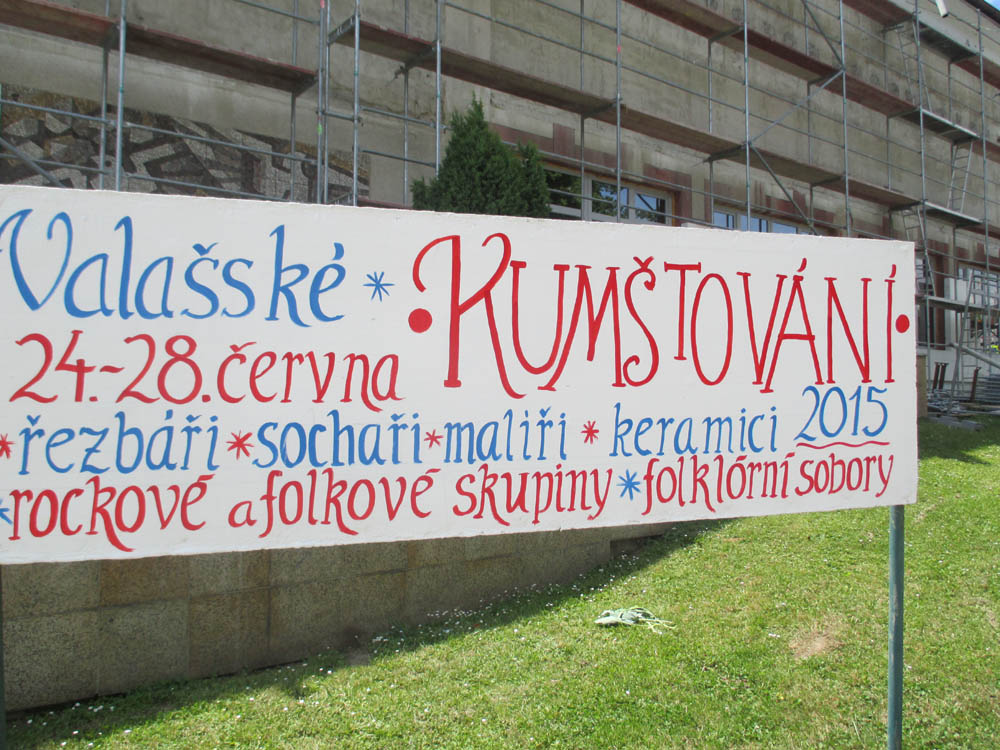 Valašské * • KUMŠTOVÁNÍ •
24.-28. června
* řezbáři * sochaři * maliři * keramici 2015
* rockové a folkové skupiny * folklórní sobory